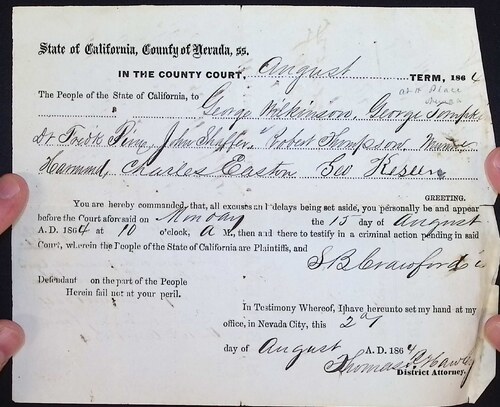 State of California, County of Nevada, ss.
IN THE COUNTY COURT, August TERM, 1864
The People of the State of California, to George Wilkinson, George
Dr. Fredk John Shaffer, Robert Thompson
Charles Easton Geo
GREETING.
You are hereby commanded, that, all excuses and delays being set aside, you personally be and appear
before the Court aforesaid on Monday the 15 day of August
A. D. 1864 at 10 o'clock, A M., then and there to testify in a criminal action pending in said
Court, wherein the People of the State of California are Plaintiffs, and
S. B. Crawford
Defendant on the part of the People
Herein fail not at your peril.
In Testimony Whereof, I have hereunto set my hand at my
office, in Nevada City, this 2d
day of August A. D. 1864
Thomas P. Hawley
District Attorney.